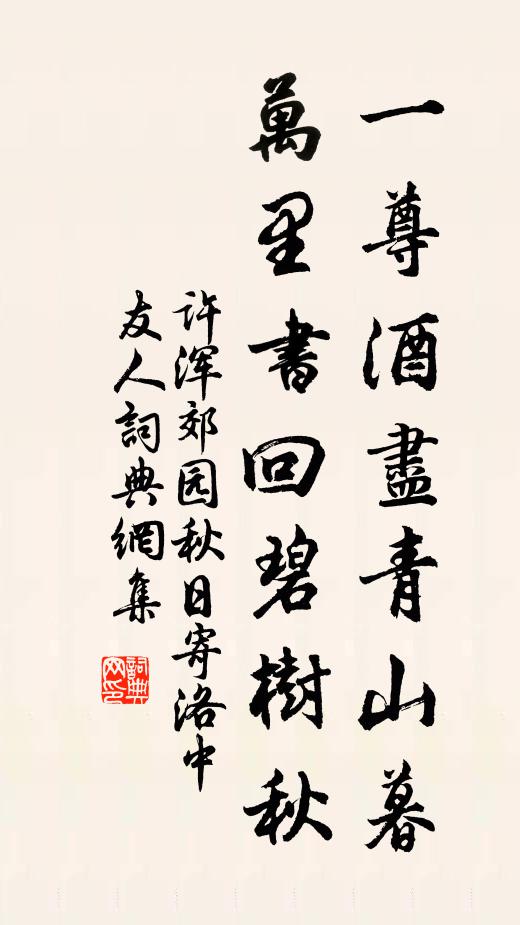 一尊酒盡青山暮
萬里書回碧樹秋
许浑郊园秋日寄洛中
友人詞典網集
詞典
网印